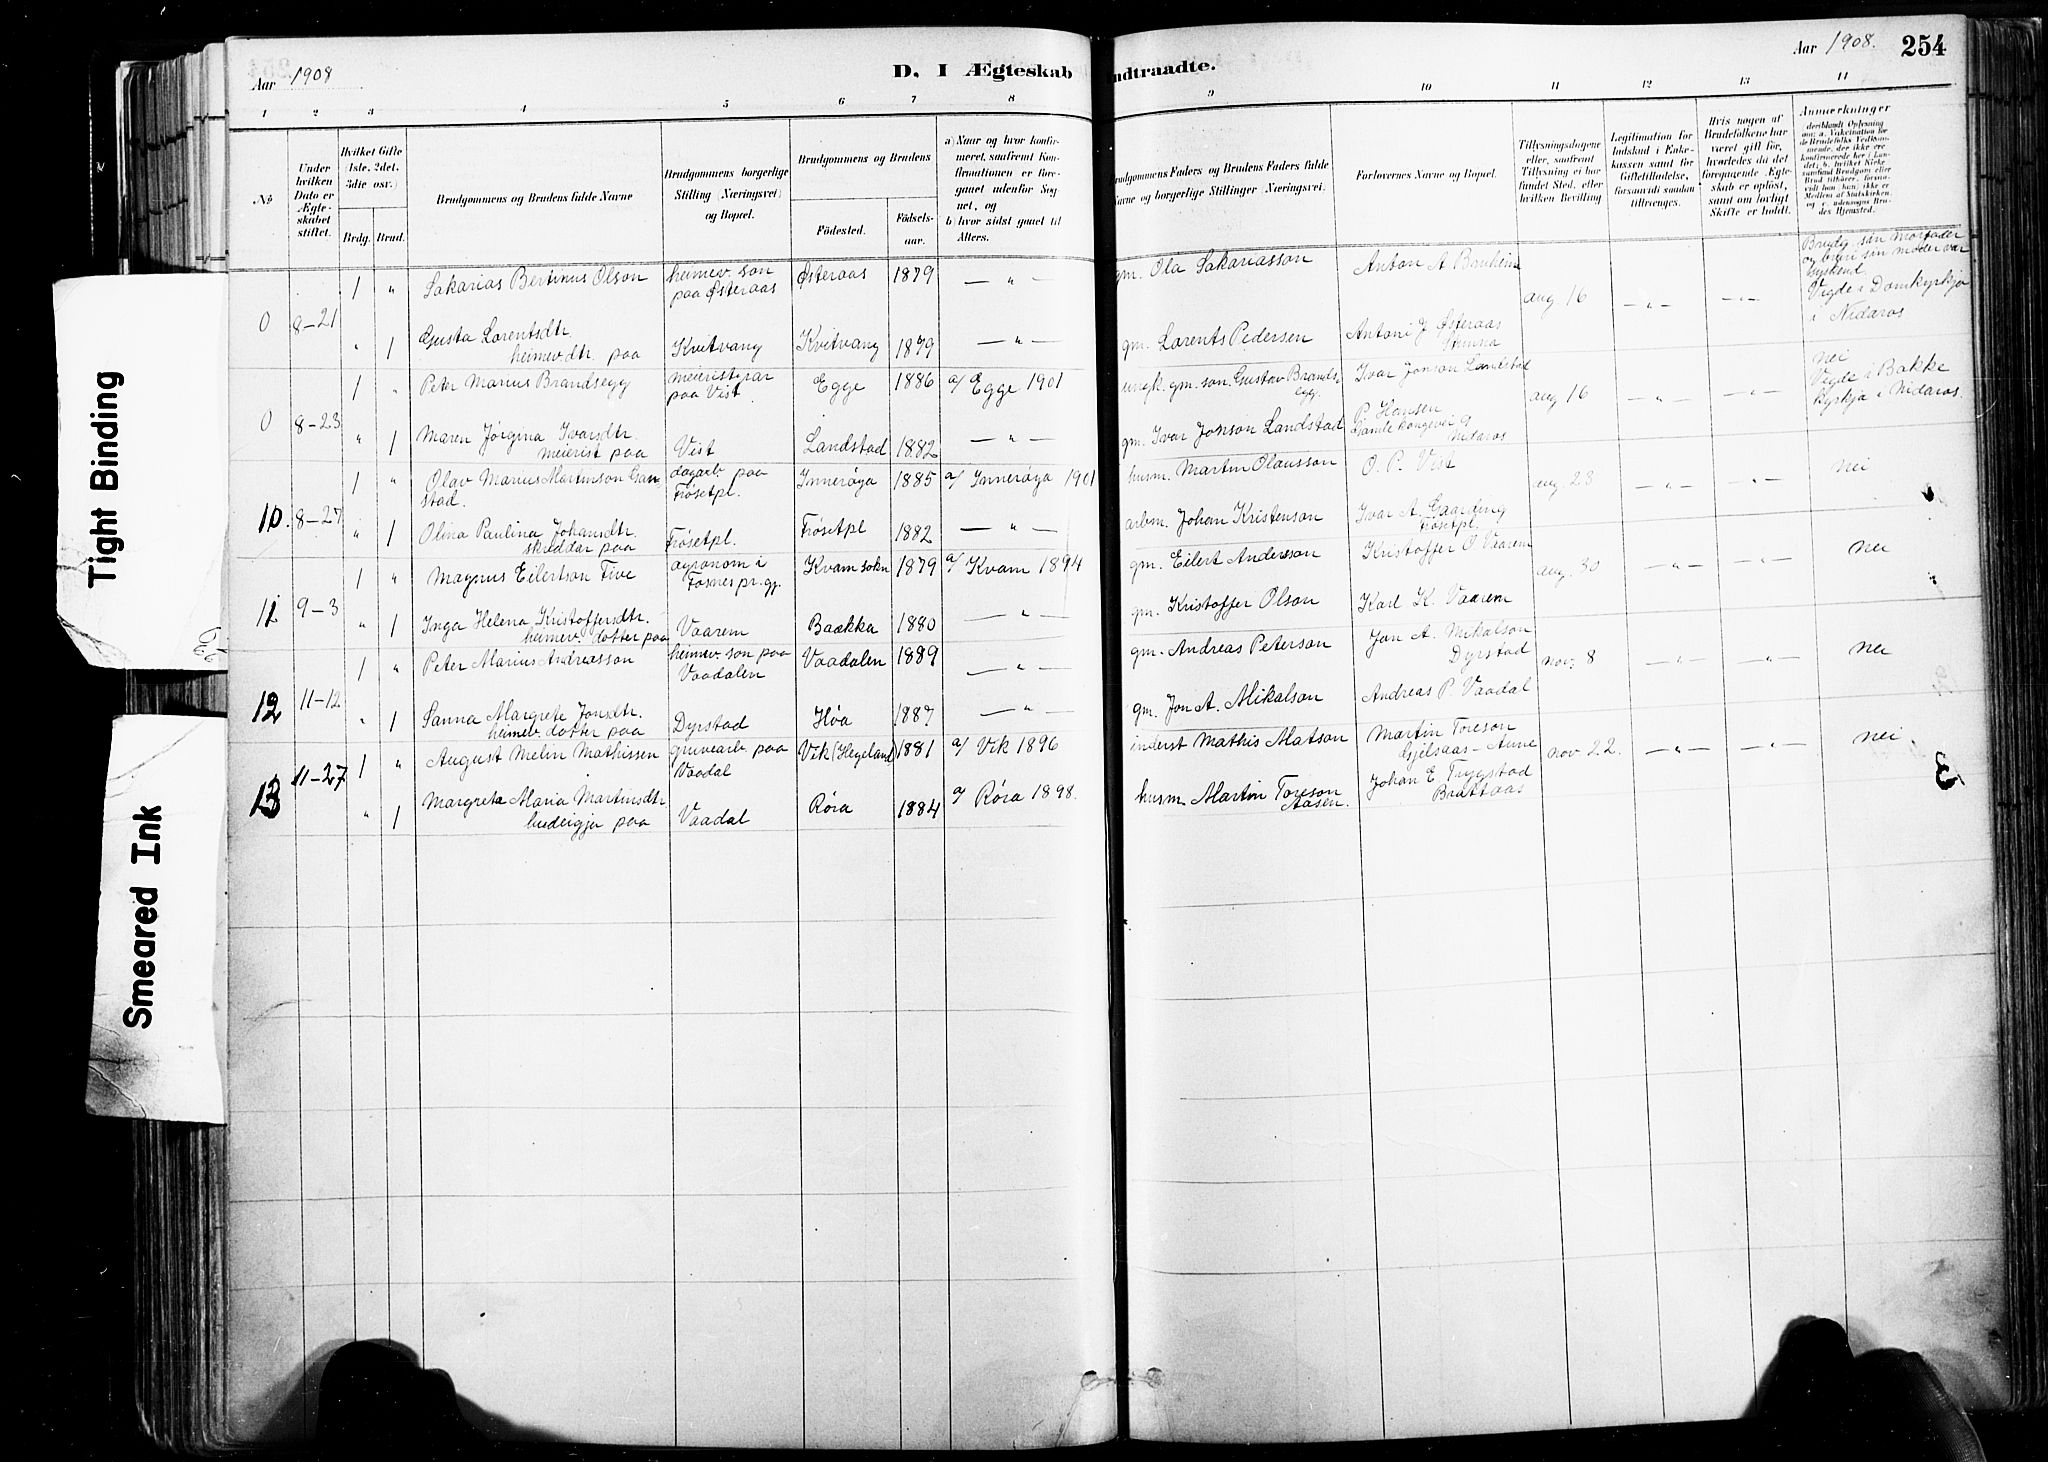 Aar 1908
D. I Ægteskab indtraadte.
Aar 1908.
254
1 2 3 4 5 6 7 8 9 10 11 12 13 14
No
Under hvilken Dato er Ægteskabet stiftet.
Hvilket Gifte (1ste, 2det, 3die osv.)
Brdg. Brud.
Brudgommens og Brudens fulde Navne
Brudgommens borgerlige Stilling (Næringsvei) og Bopæl.
Brudgommens og Brudens
Födested.
Födselsaar.
a) Naar og hvor konfirmeret, saafremt Konfirmationen er foregaaet udenfor Sognet, og
b) hvor sidst gaaet til Alters.
Brudgommens Faders og Brudens Faders fulde Navne og borgerlige Stillinger (Næringsvei.
Forlovernes Navne og Bopæl.
Tillysningsdagene eller, saafremt Tillysning ei har fundet Sted, efter hvilken Bevilling
Legitimation for Indskud i Enkekassen samt for Giftetilladelse, forsaavidt saadan tiltrænges.
Hvis nogen af Brudefolkene har været gift før, hvorledes da det foregaaende Ægteskab er opløst, samt om lovligt Skifte er holdt.
Anmerkninger
0 8-21
1 " Sakarias Bertinus Olson heimev. son paa Østeraas Østeraas 1879 — " — gm. Ola Sakariasson Anton A. aug 16 — " — — " —
Vigde i Domkyrkja i Nidaros
" 1 Gusta Lorentsdtr. heimev. dtr. paa Kvitvang Kvitvang 1879 — " — gm. Lorents Pedersen Antoni J. Østeraas
0 8-23
1 " Peter Marius Brandsegg meieristyrar paa Vist Egge 1886 a/ Egge 1901 ungk. gm. son Gustav Brandsegg. Ivar Jonson Landstad aug 16 — " — — " — nei Vigde i Bakke kyrkja i Nidaros.
" 1 Maren Jørgina Ivarsdtr. meierist paa Vist Landstad 1882 — " — gm. Ivar Jonson Landstad P. Hansen Gamle kongevei 9 Nidaros
10. 8-27
1 " Olav Marius Martinson Ganstad. dagarb. paa Frösetpl. Innerøya 1885 a/ Innerøya 1901 husm. Martin Olausson O. P. Vist aug 23 — " — — " — nei
" 1 Olina Paulina Johansdtr. skreddar paa Frösetpl. Frösetpl 1882 — " — arbm. Johan Kristenson Ivar A. Gaarding Frösetpl.
11 9-3
1 " Magnus Eilertson Five agronom i Fosnes pr.gj. Kvam sokn 1879 a/ Kvam 1894 gm. Eilert Anderson Kristoffer O Vaarem aug. 30 — " — — " — nei
" 1 Inga Helena Kristoffersdtr. heimev. dotter paa Vaarem Baakka 1880 — " — gm. Kristoffer Olson Karl K. Vaarem
12 11-12
1 " Peter Marius Andreasson heimev. son paa Vaadalen Vaadalen 1889 — " — gm. Andreas Peterson Jon A. Mikalson Dyrstad nov. 8 — " — — " — nei
" 1 Sanna Margrete Jonsdtr. heimev. dotter paa Dyrstad Høa 1887 — " — gm. Jon A. Mikalson Andreas P. Vaadal
13 11-27
1 " August Melin Mathissen gruvearb. paa Vaadal Vik (Hegeland) 1881 a/ Vik 1896 inderst Mathis Matson Martin Toreson nov 22. — " — — " — nei
" 1 Margreta Maria Martinsdtr. budeigja paa Vaadal Røra 1884 a/ Røra 1898. husm. Martin Toreson Aasen. Johan E Trygstad Brattaas
Tight Binding
Smeared Ink